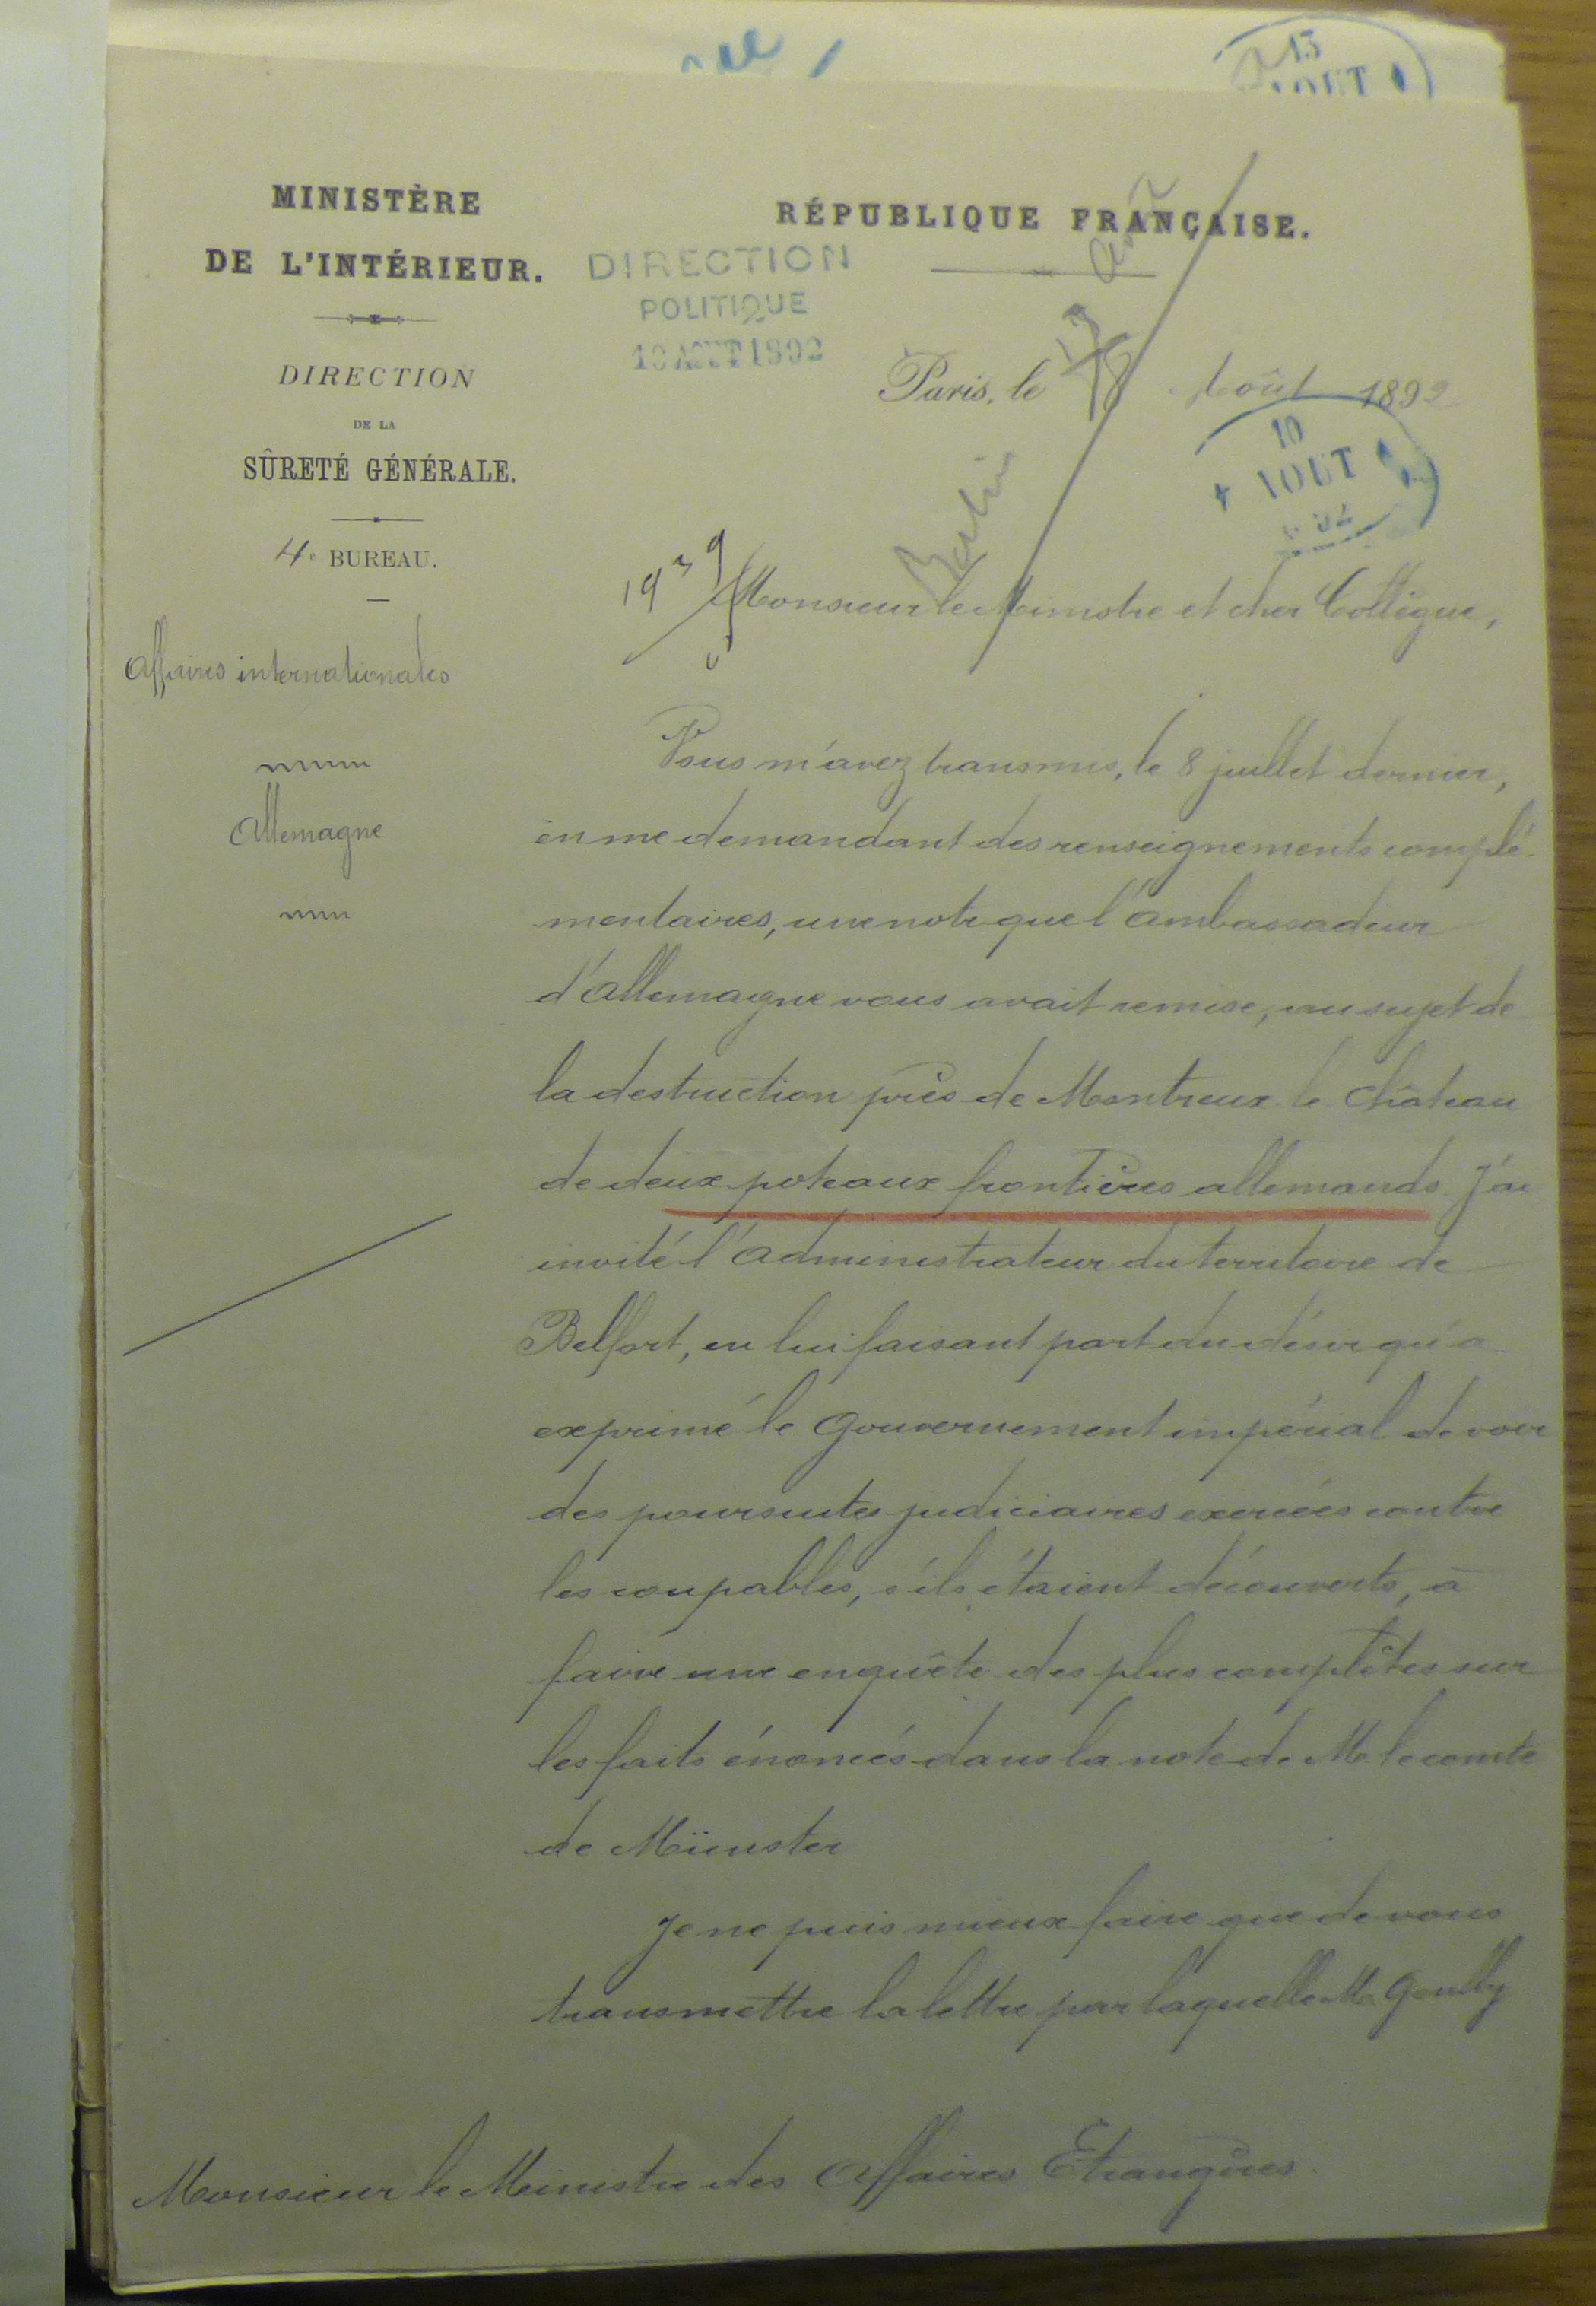 15
AOUT
MINISTÈRE
DE L'INTÉRIEUR.
DIRECTION
DE LA
SÛRETÉ GÉNÉRALE.
4e BUREAU.
Affaires internationales
Allemagne
RÉPUBLIQUE FRANÇAISE.
DIRECTION
POLITIQUE
10 AOUT 1892
Paris, le 8 Août 1892
10
AOUT
92
Berlin
19 Août
Monsieur le Ministre et cher Collègue,
Vous m'avez transmis, le 8 juillet dernier,
en me demandant des renseignements complé-
mentaires, une note que l'Ambassadeur
d'Allemagne vous avait remise, au sujet de
la destruction près de Montreux le Château
de deux poteaux frontières allemands. J'ai
invité l'Administrateur du territoire de
Belfort, en lui faisant part du désir qu'a
exprimé le Gouvernement impérial de voir
des poursuites judiciaires exercées contre
les coupables, s'ils étaient découverts, à
faire une enquête des plus complètes sur
les faits énoncés dans la note de M. le comte
de Münster
Je ne puis mieux faire que de vous
transmettre la lettre par laquelle M.
Monsieur le Ministre des Affaires Etrangères